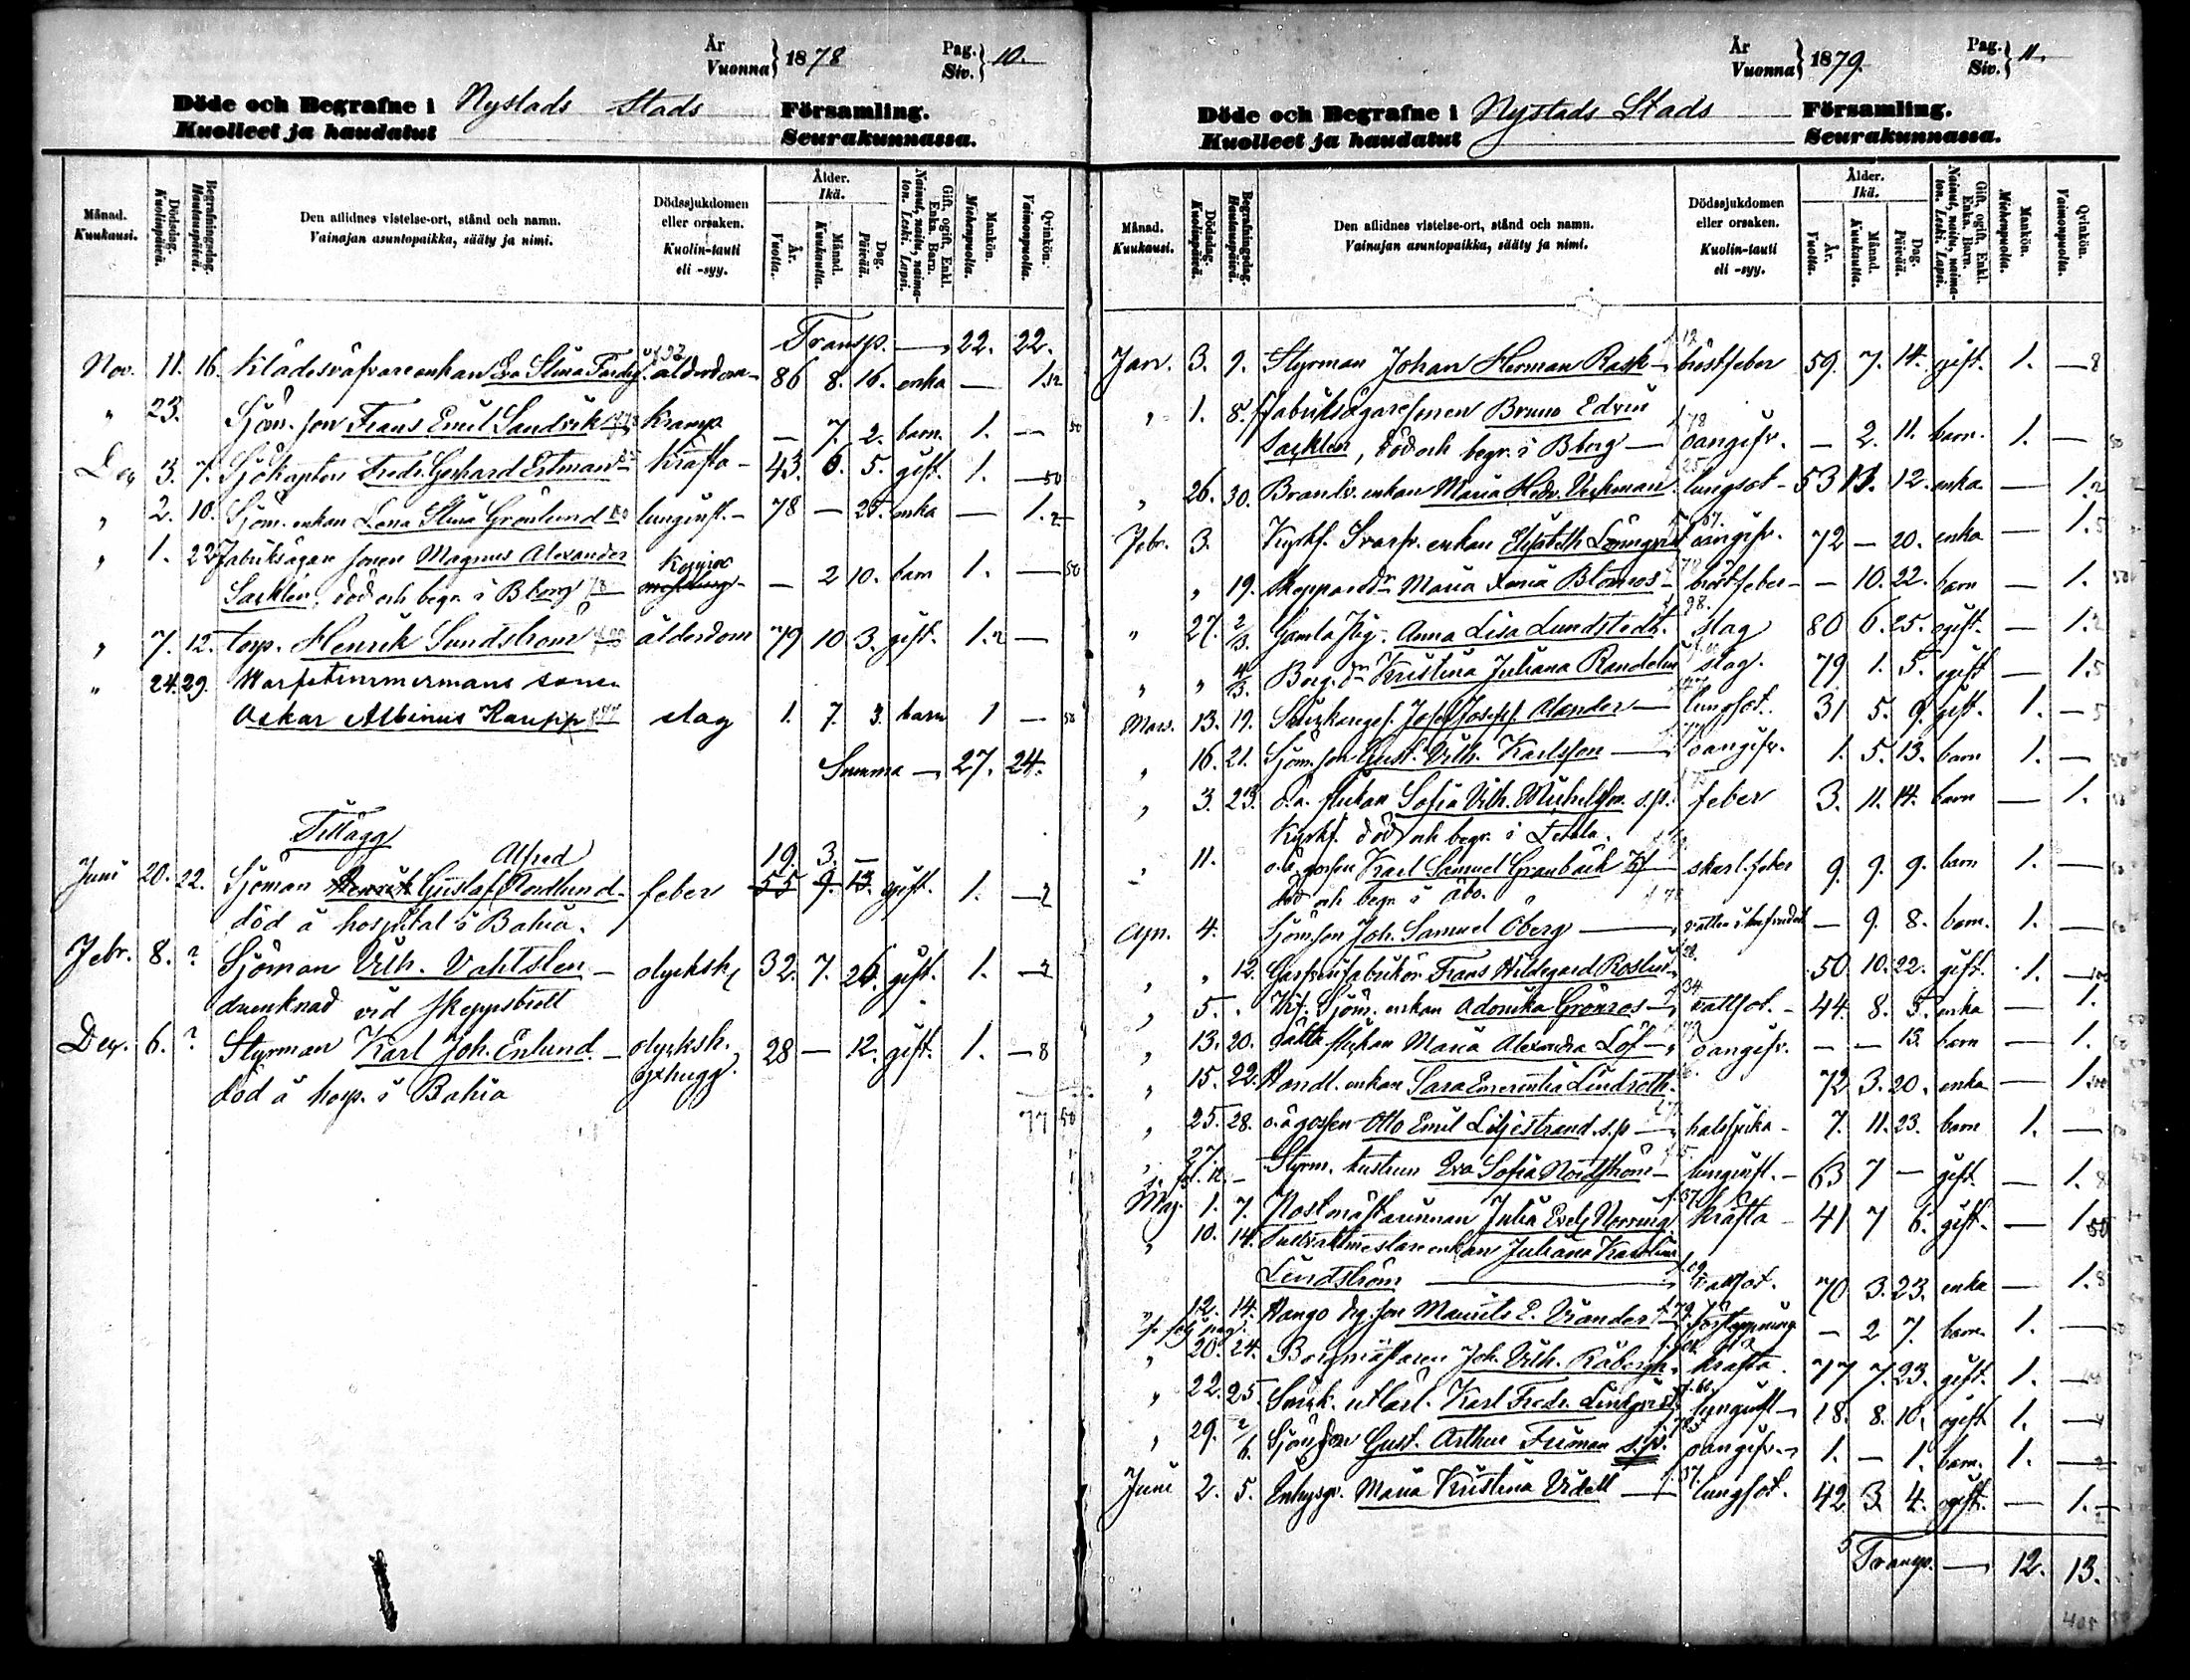 År
Vuonna } 1878
Pag.
Siv. } 10.
Döde och Begrafne i Nystads Stads Församling.
Kuolleet ja haudatut Seurakunnassa.
Månad. Kuukausi.
Dödsdag. Kuolinpäivä.
Begrafningsdag. Hautauspäivä.
Den aflidnes vistelse-ort, stånd och namn.
Vainajan asuntopaikka, sääty ja nimi.
Dödssjukdomen eller orsaken.
Kuolin-tauti eli -syy.
Ålder. Ikä.
År. Vuotta.
Månad. Kuukautta.
Dag. Päivää.
Gift, ogift, Enkl. Enka. Barn. Nainut, naitu, naimaton. Leski. Lapsi.
Mankön. Miehenpuolta.
Qvinkön. Vaimonpuolta.
Transp. — 22. 22.
Nov. 11. 16. Klädesväfvareenkan Eva Stina ålderdom 86 8. 16. enka — 1.
" 23. Sjöm. son Frans Emil Sandvik kramp — 7. 2. barn. 1. — 50
Dec 3. 7. Sjökapten Fredr. Gerhard Ertman kräfta - 43. 6. 5. gift. 1. — 50
" 2. 10. Sjöm. enkan Lena Stina Grönlund lunginfl. - 78 — 25. enka — 1. 2
" 1. 22. Fabriksägare sonen Magnus Alexander
Sacklén, död och begr. i Bborg — 2 10. barn 1. — 50
" 7. 12. torp. Henrik Sundström ålderdom 79 10 3. gift. 1. 2 —
" 24. 29. Warfstimmermans sonen
Oskar Albinus Kaupp slag 1. 7. 3. barn 1 — 50
Summa — 27. 24.
Tillägg
Alfred 19. 3. —
Juni 20. 22. Sjöman Henrik Gustaf Nordlund. feber 55 9. 13. ogift. 1. — 2
död å hospital i Bahia.
Febr. 8. ? Sjöman Vilh. Vahtsten — olycksh 32. 7. 26. gift. 1. — 3
drunknad vid skeppsbrott
Dec. 6. ? Styrman Karl Joh. Enlund — olycksh. 28 — 12. gift. 1. — 8
död å hosp. i Bahia
77 50
År
Vuonna } 1879.
Pag.
Siv. } 11.
Döde och Begrafne i Nystads Stads Församling.
Kuolleet ja haudatut Seurakunnassa.
Månad. Kuukausi.
Dödsdag. Kuolinpäivä.
Begrafningsdag. Hautauspäivä.
Den aflidnes vistelse-ort, stånd och namn.
Vainajan asuntopaikka, sääty ja nimi.
Dödssjukdomen eller orsaken.
Kuolin-tauti eli -syy.
Ålder. Ikä.
År. Vuotta.
Månad. Kuukautta.
Dag. Päivää.
Gift, ogift, Enkl. Enka. Barn. Nainut, naitu, naimaton. Leski. Lapsi.
Mankön. Miehenpuolta.
Qvinkön. Vaimonpuolta.
Jan. 3. 9. Styrman Johan Herman Rask — bröstfeber 59. 7. 14. gift. 1. — 8
" 1. 8. Fabriksägaresonen Bruno Edvin
Sacklén, död och begr. i Bborg — oangifv. — 2. 11. barn. 1. — 50
" 26. 30. enkan Maria Hedv. lungsot - 53 11. 12. enka — 1. 2
Febr. 3. Kyrkf. Svarfv. enkan Elisabeth Lönnqvist oangifv. 72 — 20. enka — 1. 5
" 19. Maria Xenia Blomros — bröstfeber - — 10. 22. barn — 1. 50
" 27. 2/3. Gamla Pig. Anna Lisa Lundstedt. slag 80 6. 25. ogift. — 1. 2
" " 4/3. Borg. dr Kristina Juliana Randelin slag. 79 1. 5. ogift — 1. 5
Mars. 13. 19. Josef Josefss. Alander — lungsot. 31 5. 9. gift. 1. — 5
" 16. 21. Sjöm. son Gust. Vilh. Karlsson — oangifv. 1. 5. 13. barn 1. — 50
" 3. 23. o.ä. flickan Sofia Vilh. Michelsson s.p. feber 3. 11. 14. barn — 1. 50
Kyrkf. död och begr. i Letala.
" 11. o.ä. gossen Karl Samuel Granbäck Kf — skarl. feber 9. 9. 9. barn 1. —
död och begr. i Åbo.
Apr. 4. Sjöm. son Joh. Samuel Öberg — vatten i hufvudet — 9. 8. barn. 1. — 50
" 12. Garfverifabrikör Frans Hildegard 50 10. 22. gift. 1. —
" 5. Kf. Sjöm. enkan Adonika Grönros — vattsot. - 44. 8. 5. enka — 1.
" 13. 20. oäkta flickan Maria Alexandra Löf — oangifv. — — 13. barn — 1. 50
" 15. 22. Handl. enkan Sara Emerentia Lindroth. 72 3. 20. enka — 1.
" 25. 28. o.ä gossen Otto Emil Liljestrand. s.p — halssjuka - 7. 11. 23. barn 1. —
" 27. Styrm. hustrun Eva Sofia Nordström — lunginfl. - 63 7 — gift — 1. 8
Maj. 1. 7. Postmästarinnan Julia Evely Norring kräfta - 41 7 6. gift. — 1. 50
" 10. 14. Tullvaktmestareenkan Juliana Karolina
Lindström — vattsot. 70 3. 23. enka — 1. 8
12. 14. Hangö son E. — 2 7. barn. 1. — 50
" 20. 24. Borgmästaren Joh. Vilh. Råbergh kräfta. 77 7. 23. gift. 1. —
" 22. 25. Karl Fredr. Lindqvist lunginfl — 18. 8. 10. ogift 1. —
" 29. 2/6. Sjöm. son Gust. Arthur Friman s.p. oangifv. — 1. — 1. barn. 1. —
Juni 2. 5. Inhysqv. Maria Kristina Videll — lungsot. 42 3. 4. ogift. — 1. —
Transp. — 12. 13.
405